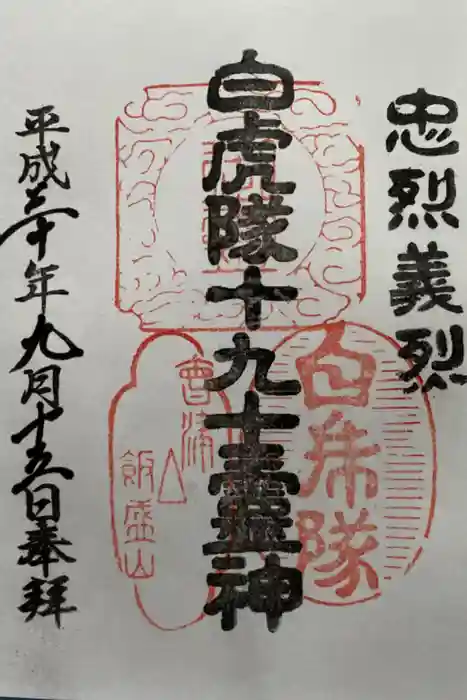 忠烈義烈
白虎隊十九士霊神
平成三十年九月十五日奉拝
白乕隊
會津
飯盛山